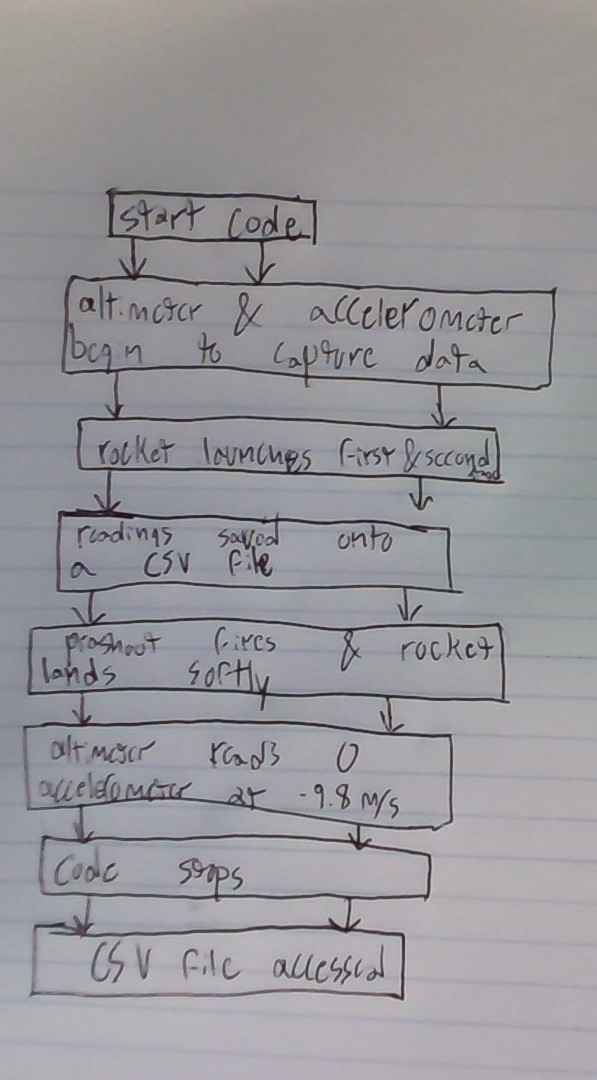 start code
altimeter & accelerometer
begin to capture data
rocket launches first & second
readings saved onto
a CSV file
prashoot fires & rocket
lands softly
altimeter reads 0
accelerometer at -9.8 m/s
Code stops
CSV file accessed